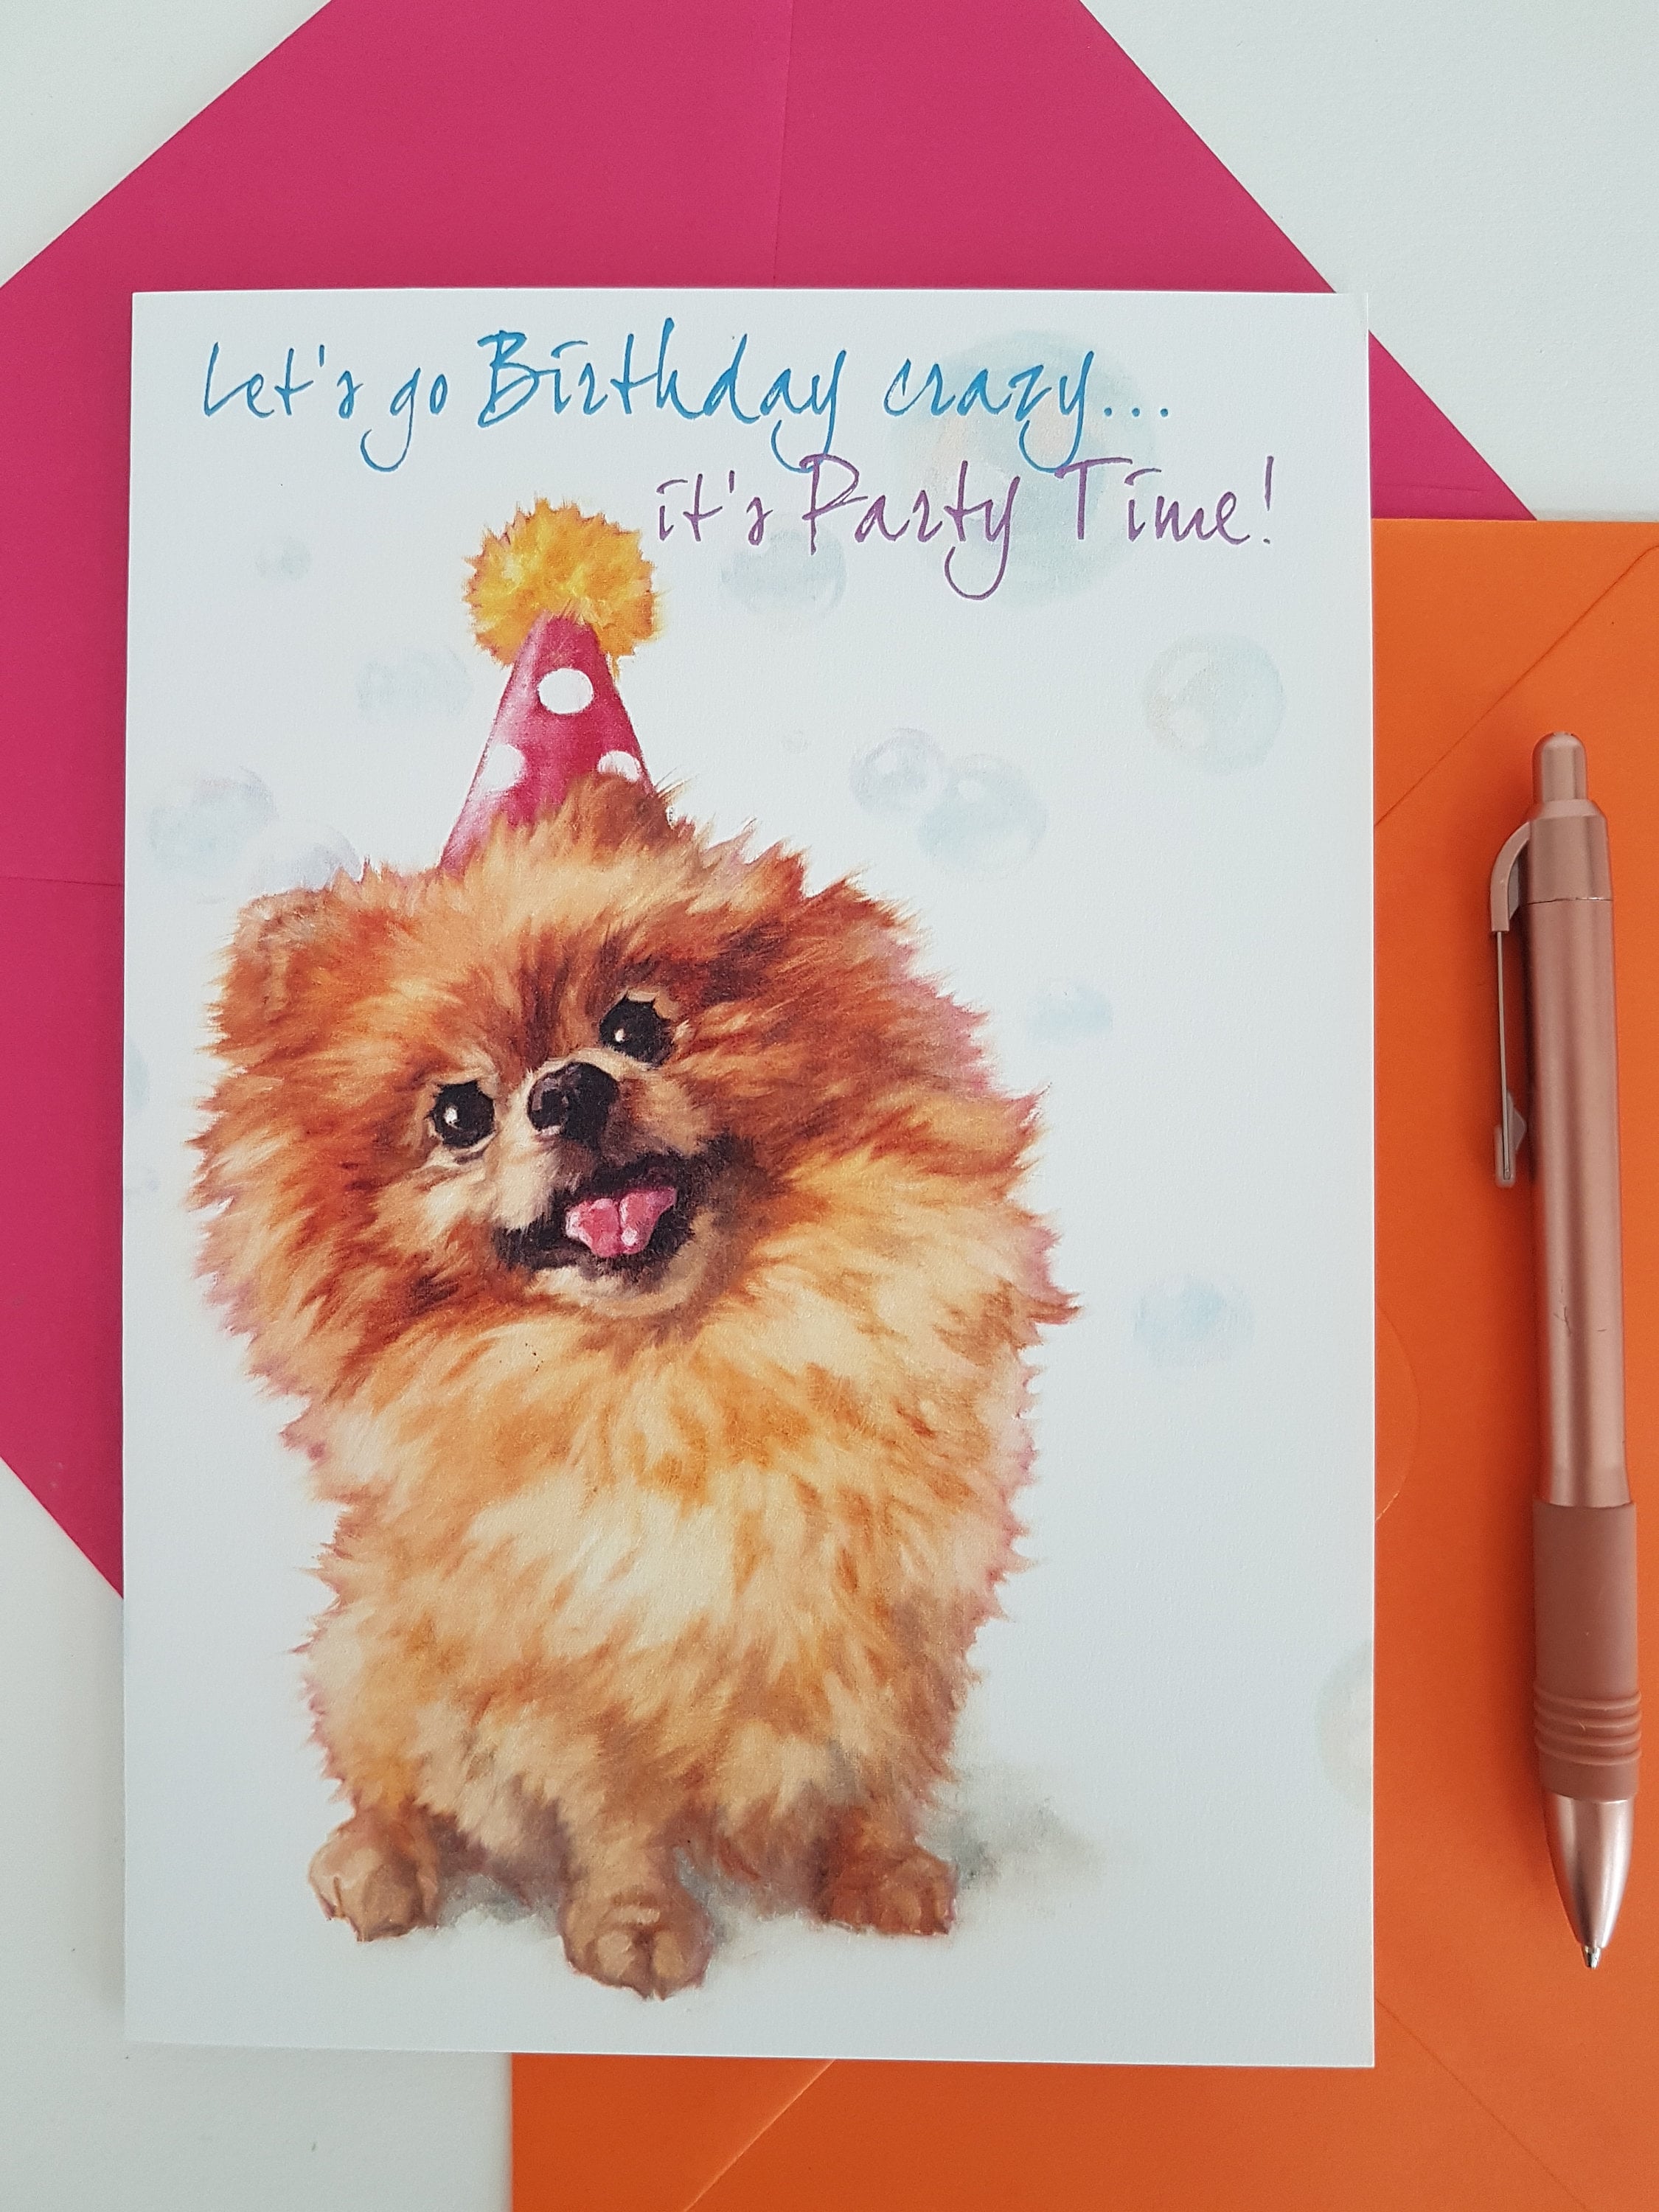 Let's go Birthday crazy...
it's Party Time!